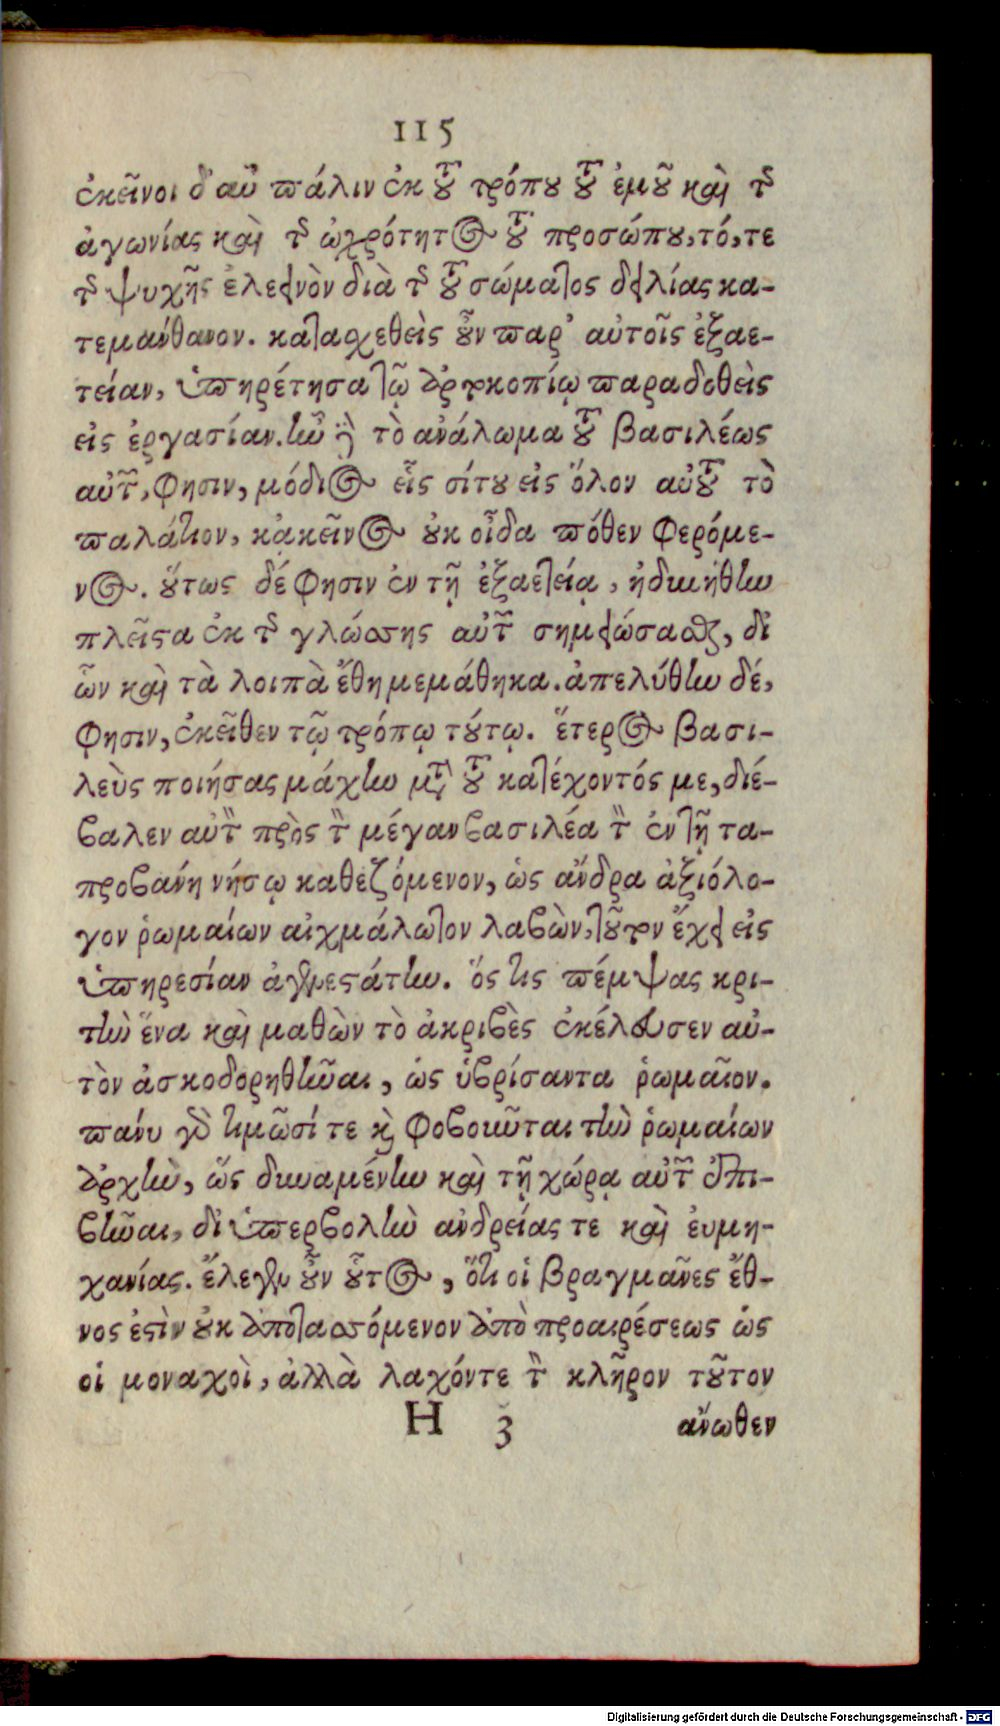 115
ἐκεῖνοι δ' αὖ πάλιν ἐκ τοῦ τρόπου τοῦ ἐμοῦ καὶ τῆς
ἀγωνίας καὶ τῆς ὠχρότητος τοῦ προσώπου, τό, τε
τῆς ψυχῆς ἐλεεινὸν διὰ τῆς τοῦ σώματος δειλίας κα-
τεμάνθανον. κατασχεθεὶς οὖν παρ' αὐτοῖς ἑξαε-
τείαν, ὑπηρέτησα τῷ ἀρτοκοπίῳ παραδοθεὶς
εἰς ἐργασίαν. ἦν δὲ τὸ ἀνάλωμα τοῦ βασιλέως
αὐτῶν, φησιν, μόδιος εἷς σίτου εἰς ὅλον αὐτοῦ τὸ
παλάτιον, κἀκεῖνος οὐκ οἶδα πόθεν φερόμε-
νος. οὕτως δέ φησιν ἐν τῇ ἑξαετείᾳ, ἠδυνήθην
πλεῖστα ἐκ τῆς γλώσσης αὐτῶν σημειώσασθαι, δι'
ὧν καὶ τὰ λοιπὰ ἔθη μεμάθηκα. ἀπελύθην δέ,
φησιν, ἐκεῖθεν τῷ τρόπῳ τούτῳ. ἕτερος βασι-
λεὺς ποιήσας μάχην μετὰ τοῦ κατέχοντός με, διέ-
βαλεν αὐτὸν πρὸς τὸν μέγαν βασιλέα τὸν ἐν τῇ τα-
προβάνῃ νήσῳ καθεζόμενον, ὡς ἄνδρα ἀξιόλο-
γον ῥωμαίων αἰχμάλωτον λαβὼν, τοῦτον ἔχει εἰς
ὑπηρεσίαν ἀγριεστάτην. ὅς τις πέμψας κρι-
τὴν ἕνα καὶ μαθὼν τὸ ἀκριβὲς ἐκέλευσεν αὐ-
τὸν ἀσκοδορηθῆναι, ὡς ὑβρίσαντα ῥωμαῖον.
πάνυ γὰρ τιμῶσί τε καὶ φοβοῦνται τὴν ῥωμαίων
ἀρχὴν, ὥς δυναμένην καὶ τῇ χώρᾳ αὐτῶν ἐπι-
βῆναι, δι' ὑπερβολὴν ἀνδρείας τε καὶ ἐυμη-
χανίας. ἔλεγεν οὖν οὗτος, ὅτι οἱ βραγμᾶνες ἔθ-
νος ἐστὶν οὐκ ἀποτασσόμενον ἀπὸ προαιρέσεως ὡς
οἱ μοναχοὶ, ἀλλὰ λαχόντε τὸν κλῆρον τοῦτον
H 3 ἄνωθεν
Digitalisierung gefördert durch die Deutsche Forschungsgemeinschaft - DFG